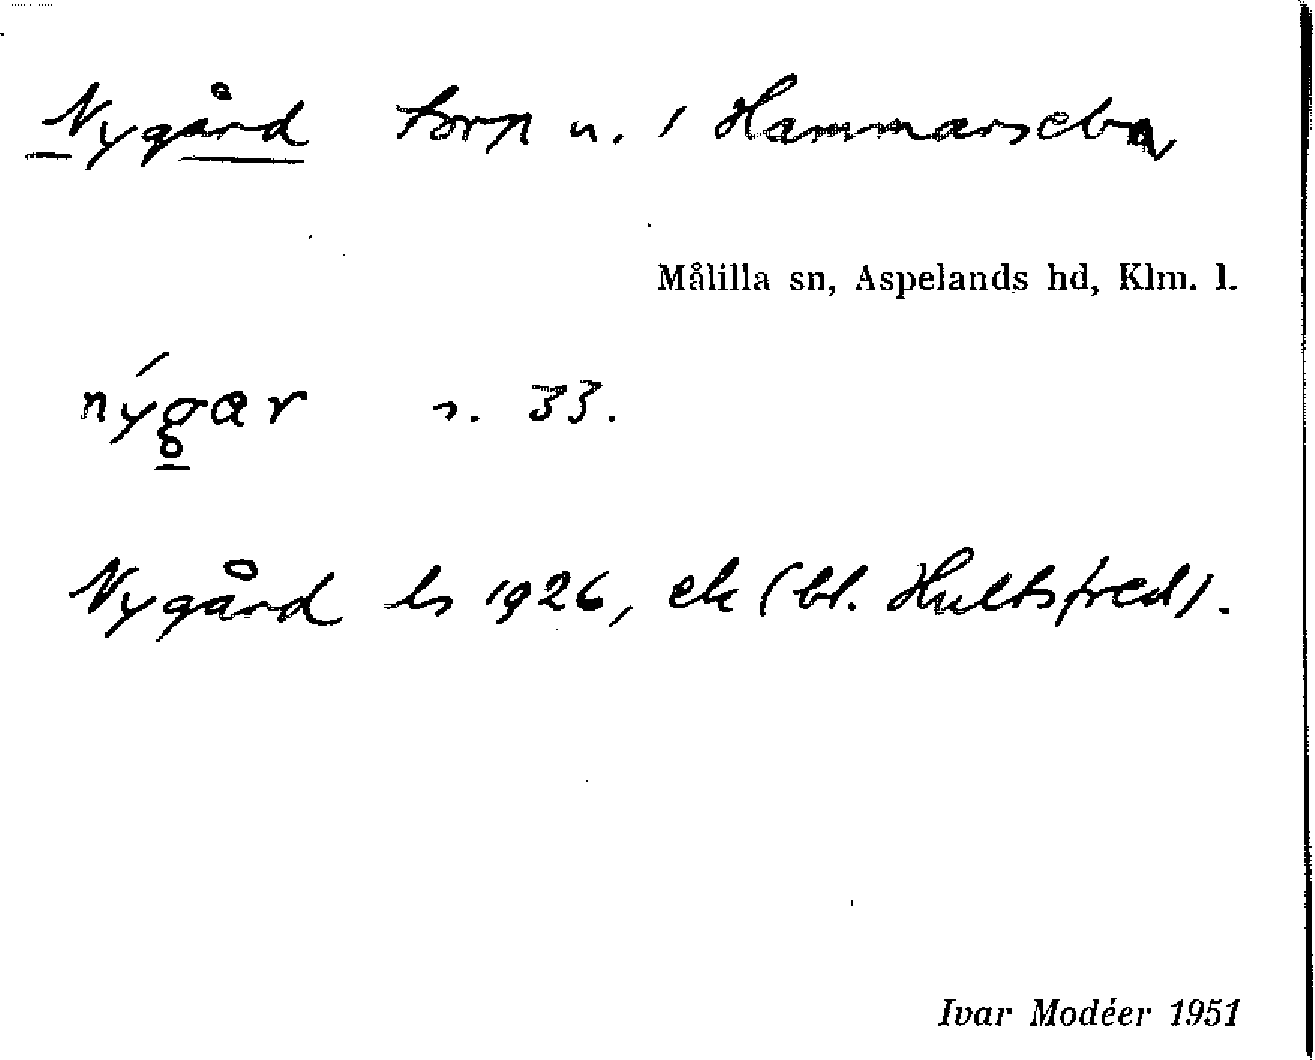 Nygård torp u. / Hammarsebo
Målilla sn, Aspelands hd, Klm. l.
nýgår s. 33.
Nygård ls 1926, ek (bl. Hultsfred).
Ivar Modéer 1951